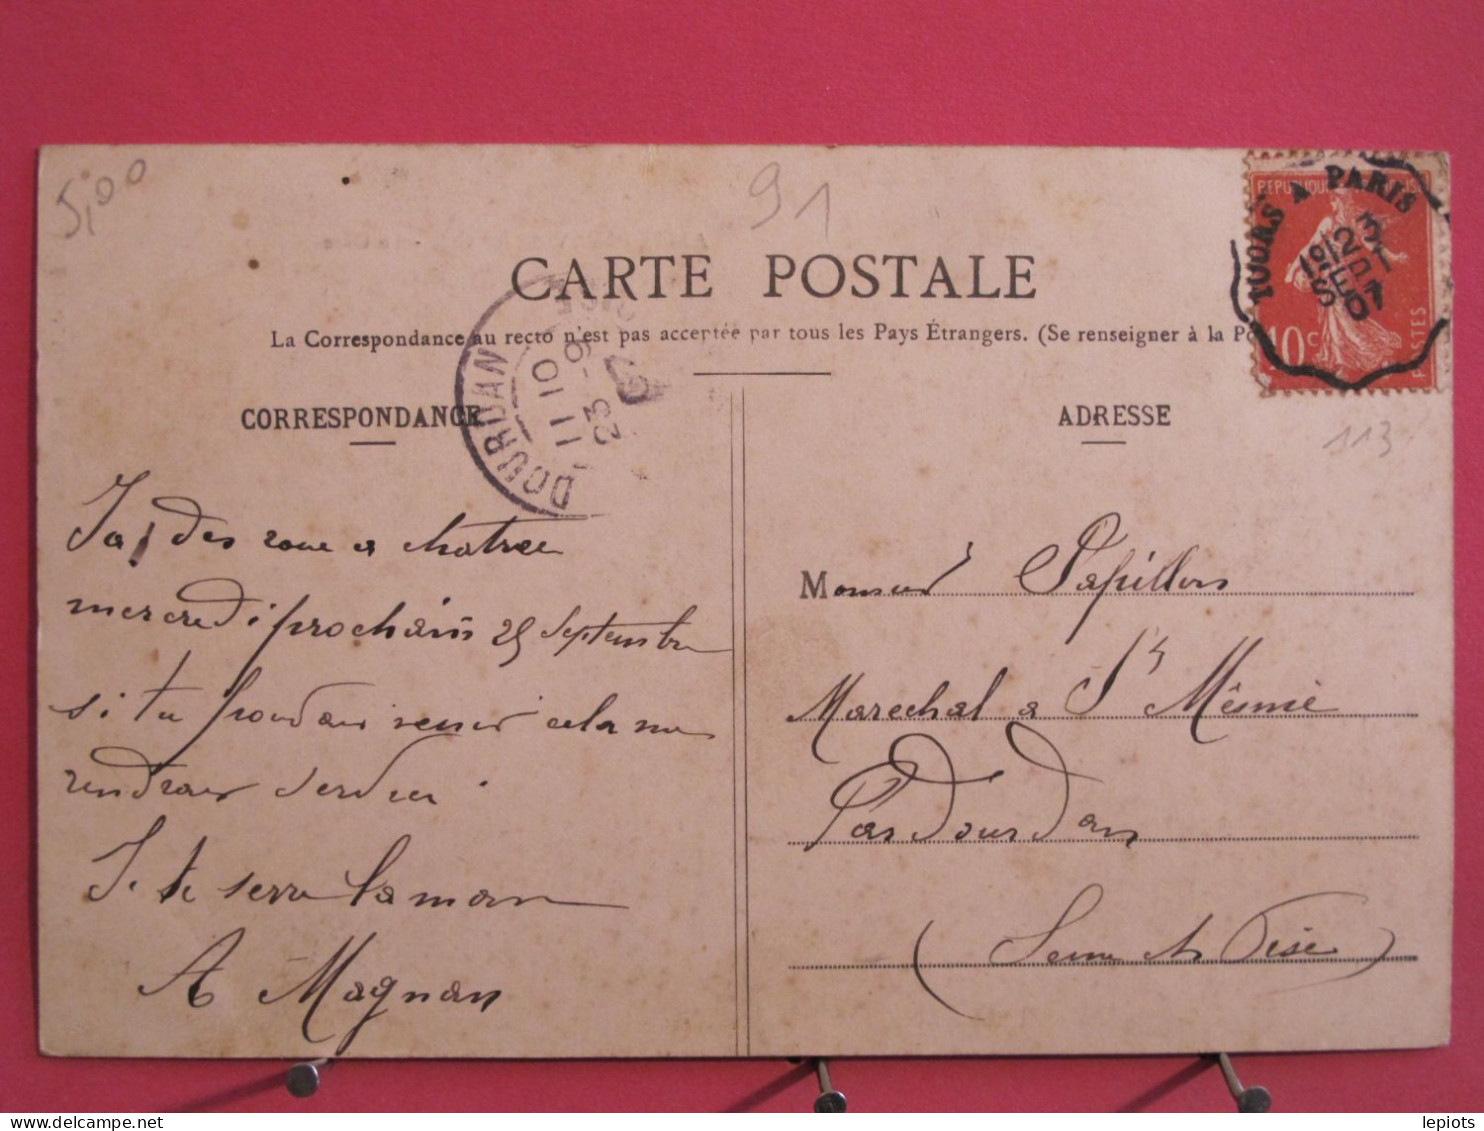 5,00
91
CARTE POSTALE
La Correspondance au recto n'est pas acceptée par tous les Pays Étrangers. (Se renseigner à la Po
TOURS A PARIS
23
SEPT
07
REPUBLIQUE
10 c
POSTES
DOURDAN
11 10
23 -9
07
CORRESPONDANCE
ADRESSE
113
Jai des roue a chatrer
mercredi prochain 25 Septembre
si tu pouvais venir cela me
rendrais service
Je te serre la main
A Magnan
Monsieur Papillon
Marechal a St Mesme
Par Dourdan
(Seine et Oise)
lepiots